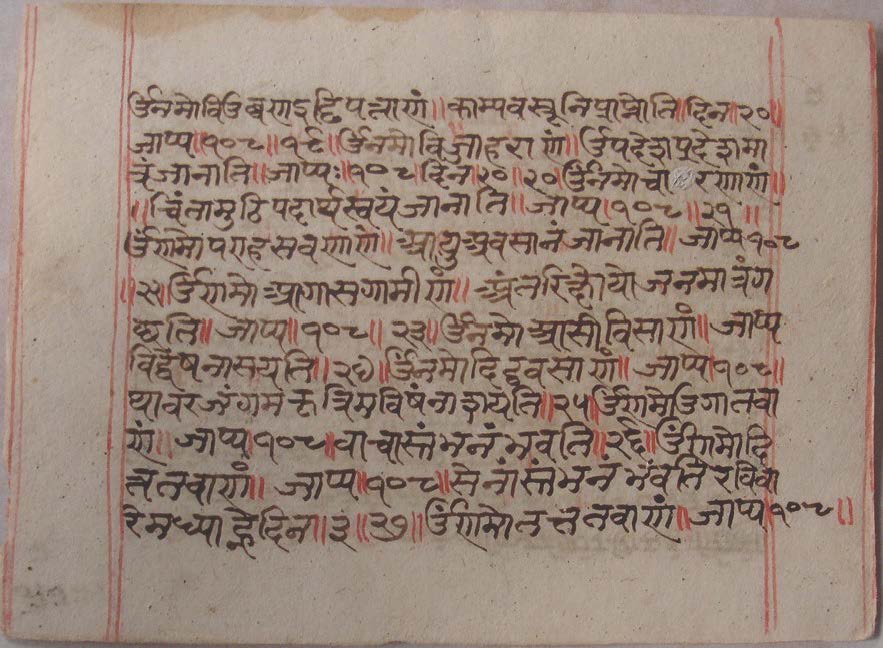 ॐनमोविउव्वणइड्ढिपत्ताणं॥ काम्यवस्तूनिप्राप्नोति॥दिन॥२०॥
जाप्प॥१०८॥१९॥ॐनमोविजाहराणं॥ॐपदेशप्रदेशमा
त्रंजानाति॥जाप्पः॥१०८दिन॥२०॥२०ॐनमोचारणाणं॥
॥चिंतामुठिपदार्थस्वयंजानाति॥ जाप्प॥१०८॥२१॥
ॐणमोपराहसवणाणं॥ आयुअवसानंजानाति॥ जाप्प१०८
॥२२॥ॐणमोआगासगामीणं॥ अंतरिक्षेयोजनमात्रंग
छति॥ जाप्प॥१०८॥२३॥ ॐनमोआसीविसाणं॥ जाप्प
विद्वेषनासयति॥२४॥ॐनमोदिट्ठवसाणं॥ जाप्प॥१०८॥
थावरजंगमकृत्रिमविषंनाशयति॥२५॥ॐणमोउगातवा
णं॥ जाप्प॥१०८॥वाचास्तंभनंभवति॥२६॥ॐणमोदि
त्ततवाणं॥ जाप्प॥१०८॥सेनांस्तंभनंभवतिरविवा
रेमध्याह्नेदिन॥३॥२७॥ॐणमोतत्ततवाणं॥ जाप्प॥१०८॥